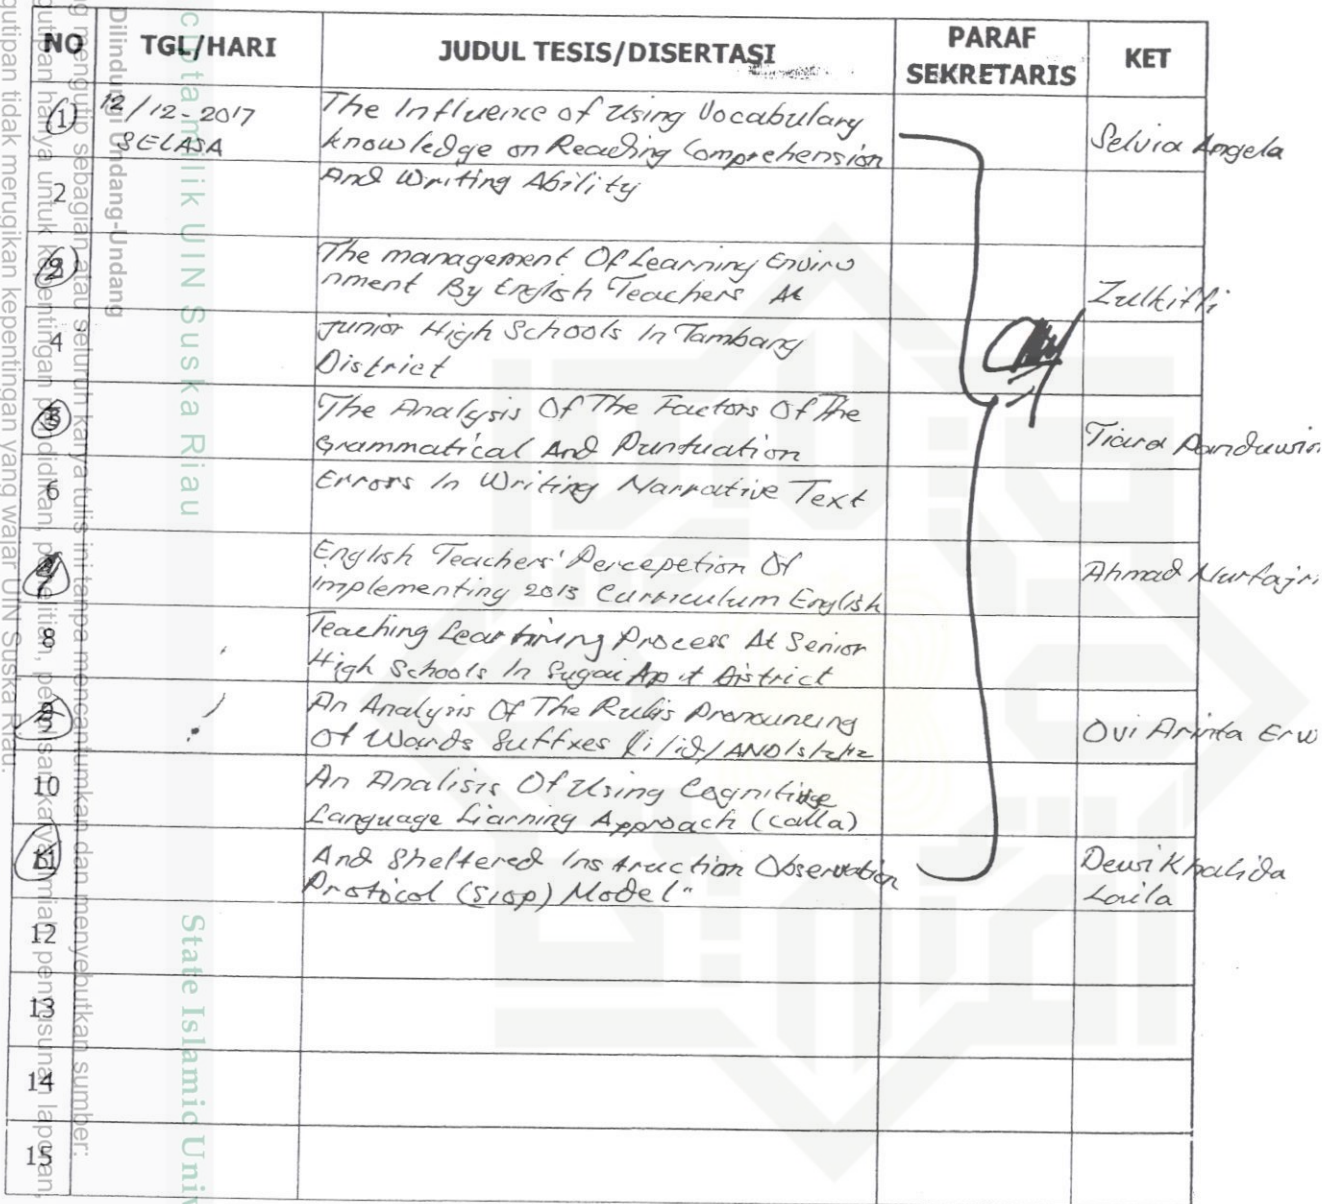 NO TGL/HARI JUDUL TESIS/DISERTASI PARAF SEKRETARIS KET
1 12/12-2017 The Influence of Using Vocabulary
SELASA knowledge on Reading Comprehension Selvia Angela
2 And Writing Ability
The management Of Learning Enviro
nment By English Teachers At Zulkifli
4 Junior High Schools In Tambang
District
The Analysis Of The Factors Of The
Grammatical And Puntuation Tiara
6 Errors In Writing Narrative Text
English Teachers' Percepetion Of Ahmad Nurfajri
Implementing 2013 Curriculum English
8 Teaching Process At Senior
High Schools In District
An Analysis Of The Pronouncing
Of Words Ovi Arinta Erw
10 An Analisis Of Using Cognitive
Language Liarning Approach (calla)
And Sheltered Instruction Observation Dewi Khalida
Protocol (Siop) Model" Laila
12
13
14
15
cipta milik UIN Suska Riau
State Islamic Univ
Dilindungi Undang-Undang
g mengutip sebagian atau seluruh karya tulis ini tanpa mencantumkan dan menyebutkan sumber:
gutipan hanya untuk kepentingan pendidikan, penelitian, penulisan karya ilmiah, penyusunan laporan,
gutipan tidak merugikan kepentingan yang wajar UIN Suska Riau.